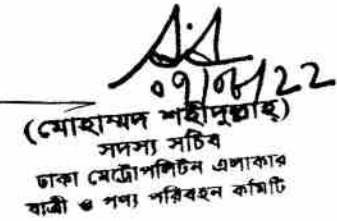 ০৭/০৮/22
(মোহাম্মদ শহীদুল্লাহ্)
সদস্য সচিব
ঢাকা মেট্রোপলিটন এলাকার
যাত্রী ও পণ্য পরিবহন কমিটি